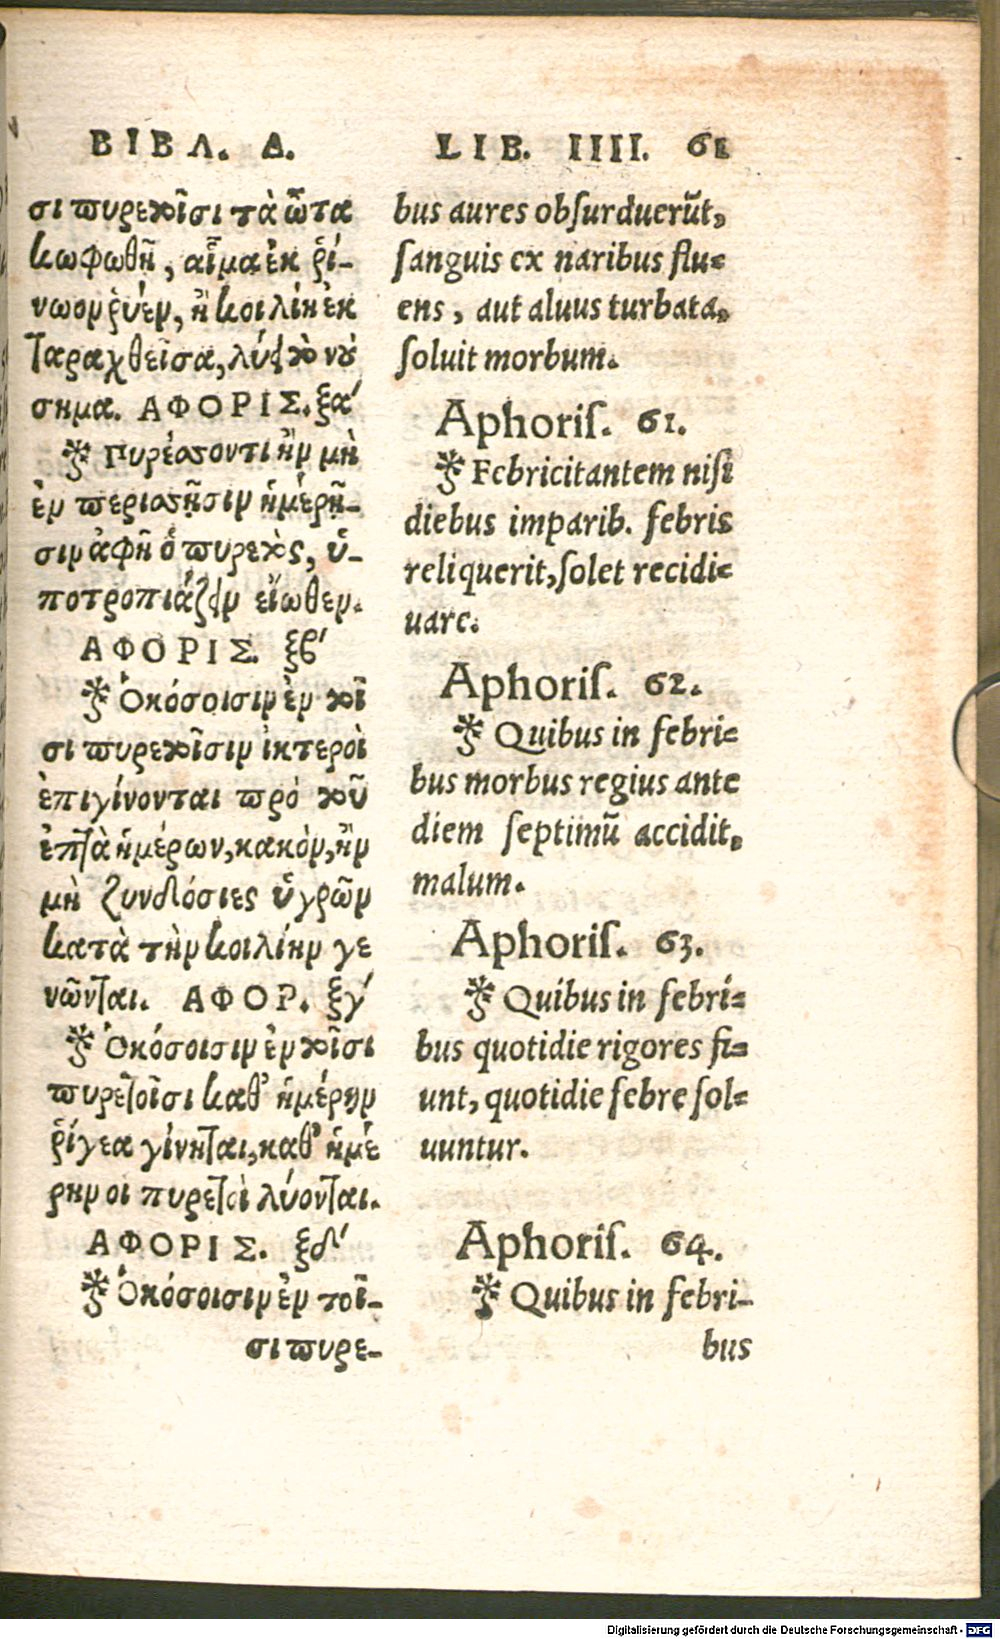 ΒΙΒΛ. Δ.
σι πυρετοῖσι τὰ ὦτα
κωφωθῇ, αἷμα ἐκ ῥί-
νωον ῥυὲν, ἢ κοιλίη ἐκ
ταραχθεῖσα, λύει τὸ νού
σημα. ΑΦΟΡΙΣ. ξα΄
Πυρέσσοντι ἢν μὴ
ἐν περισσῇσιν ἡμέρῃ-
σιν ἀφῇ ὁ πυρετὸς, ὑ-
ποτροπιάζειν εἴωθεν.
ΑΦΟΡΙΣ. ξβ΄
Ὁκόσοισιν ἐν τοῖ
σι πυρετοῖσιν ἰκτεροὶ
ἐπιγίνονται πρὸ τοῦ
ἑπτὰ ἡμέρων, κακὸν, ἢν
μὴ ξυνδόσιες ὑγρῶν
κατὰ τὴν κοιλίην γε
νῶνται. ΑΦΟΡ. ξγ΄
Ὁκόσοισιν ἐν τοῖσι
πυρετοῖσι καθ' ἡμέρην
ῥίγεα γίνηται, καθ' ἡμέ
ρην οι πυρετοὶ λύονται.
ΑΦΟΡΙΣ. ξδ΄
Ὁκόσοισιν ἐν τοῖ-
σι πυρε-
LIB. IIII. 61
bus aures obſurduerūt,
ſanguis ex naribus flu-
ens, aut aluus turbata,
ſoluit morbum.
Aphoriſ. 61.
Febricitantem niſi
diebus imparib. febris
reliquerit, ſolet recidi-
uare.
Aphoriſ. 62.
Quibus in febri-
bus morbus regius ante
diem ſeptimū accidit,
malum.
Aphoriſ. 63.
Quibus in febri-
bus quotidie rigores fi-
unt, quotidie febre ſol-
uuntur.
Aphoriſ. 64.
Quibus in febri-
bus
Digitalisierung gefördert durch die Deutsche Forschungsgemeinschaft - DFG